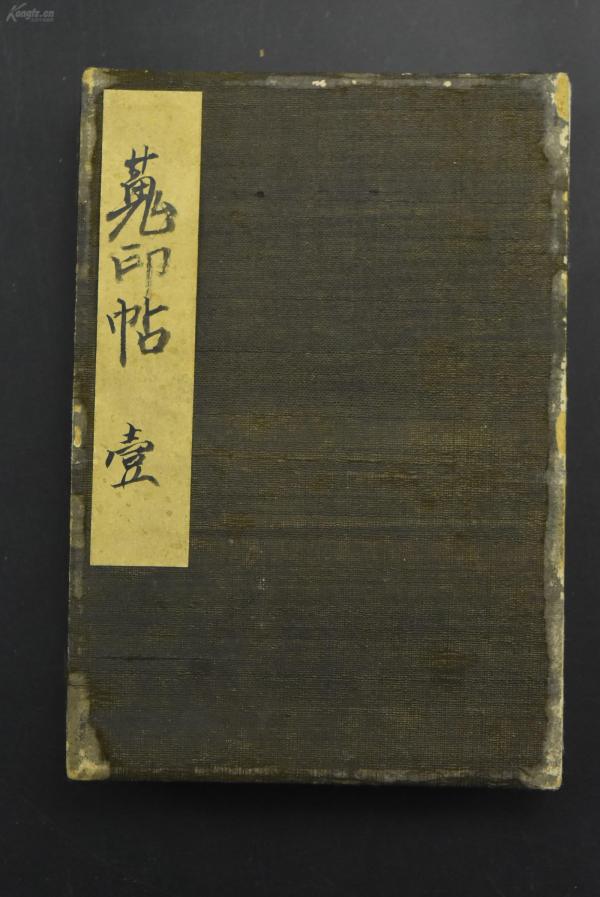 Kongfz.cn
蒐印帖 壹